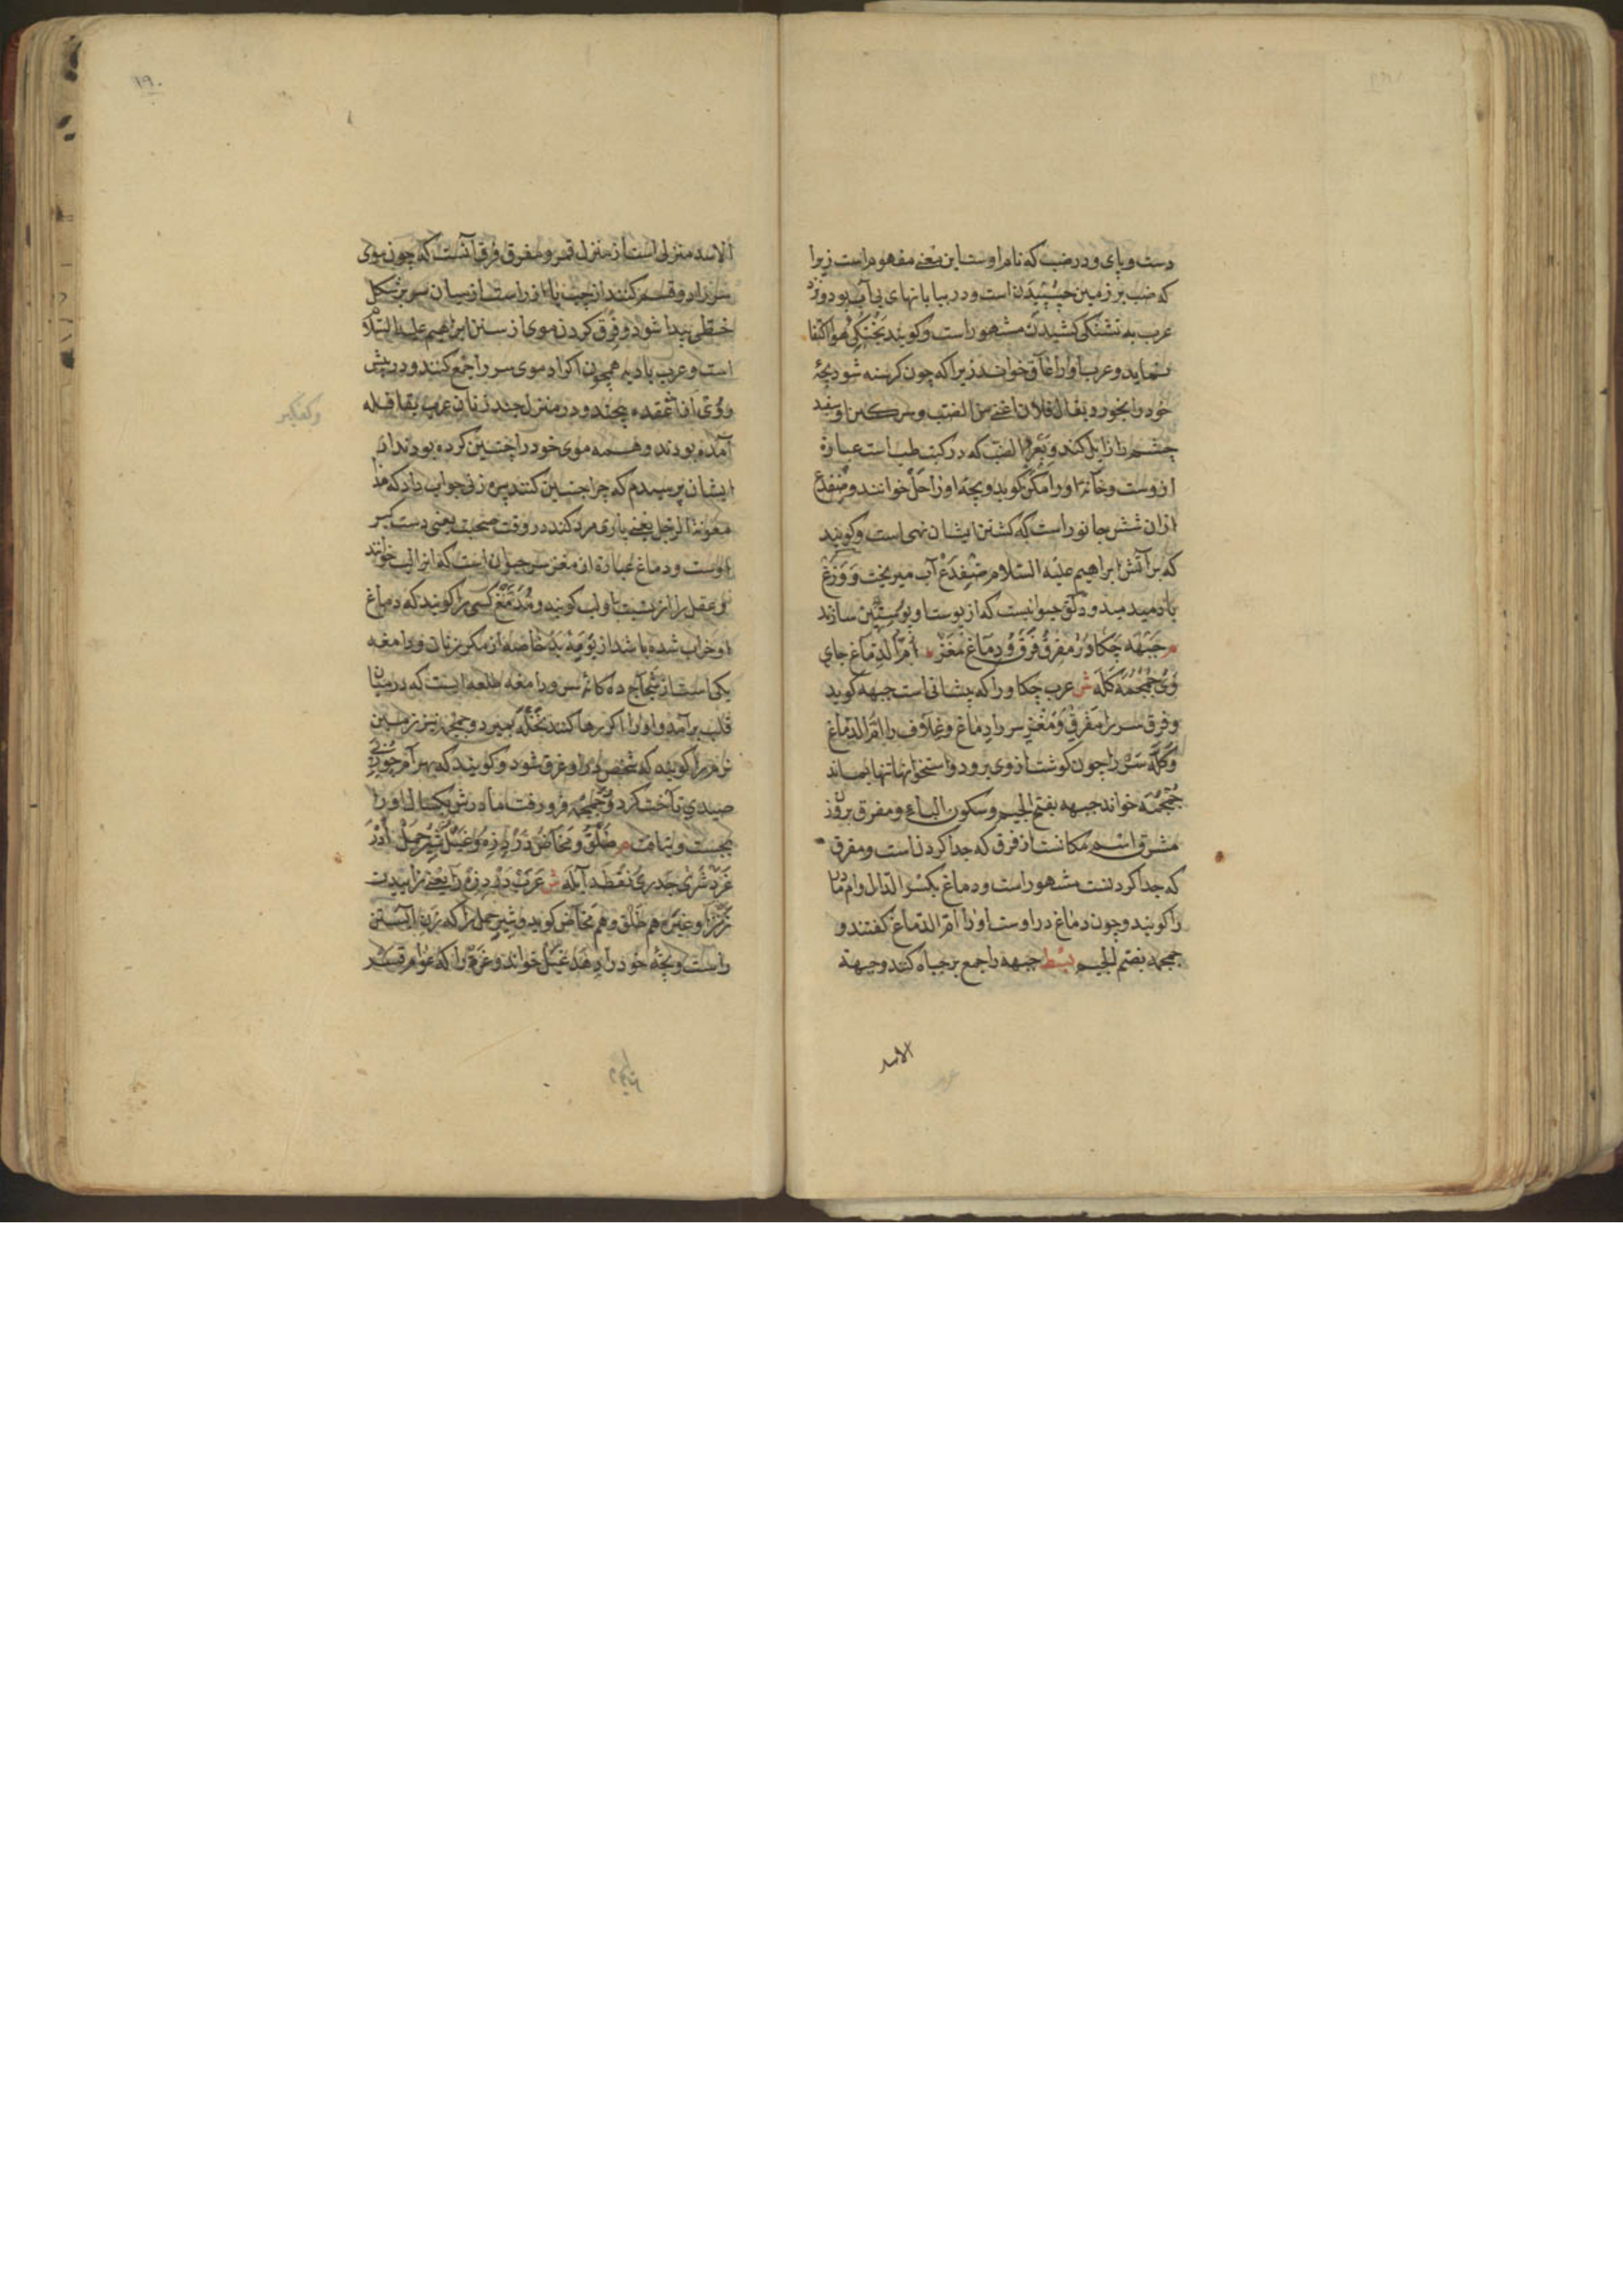 دست و پای و در ضب که نام اوست این معنی مفهوم است زیرا
که ضب بر زمین چسپیدن است و در بیابانهای بی آب بود و نزد
عرب به تشنگی کشیدن مشهور است و کویند بخنکی هوا اکتفا
نماید و عرب او را عاق خوانند زیرا که چون کرسنه شود بچهٔ
خود را بخورد یقال فلان اعق من الضب و سرکین او سفید
چشم را زایل کند و بعر الضب که در کتب طب است عبارة
ازوست و خانهٔ او را مکن کوید و بچه او را حسل خوانند و ضفدع
ازان شش جانور است که کشتن ایشان نهی است و کویند
که بر آتش ابراهیم علیه السلام ضفدع آب میریخت و وزغ
باد میدمید و دلق حیوانیست که از پوست او پوستین سازند
م جبهه چکاد و مفرق فرق و دماغ مغز ام الدماغ جای
وی جمجمه کله ش عرب چکاد را که پیشانی است جبهه کوید
و فرق سر را مفرق و مغز سر را دماغ و غلاف را ام الدماغ
و کلهٔ سر را چون کوشت از وی برود و استخوانها تنها بماند
جمجمه خواند جبهه بفتح الجیم و سکون الباء و مفرق بر وزن
مشرق اسم مکانست از فرق که جدا کردن است و مفرق
که جدا کردنست مشهور است و دماغ بکسر الدال و ام
را کویند و چون دماغ در اوست او را ام الدماغ کفتند و
جمجمه بضم الجیم بسط جبهه را جمع بر جباه کنند و جبهة
الاسد
۱۹۰
الاسد منزلی است از منزل قمر و مفرق فرق آنست که چون موی
سر را دو قسم کنند از چپ یا از راست از میان سر بر شکل
خطی پیدا شود و فرق کردن موی از سنن ابراهیم علیه السلام
است و عرب بادیه همچون اکراد موی سر را جمع کنند و در پیش
و وی عقده پیچند و در منزل چند زنان عرب بقافله
آمده بودند و همه موی خود را چنین کرده بودند از
ایشان پرسیدم که چرا چنین کنند پس زنی جواب داد که هذا
معونة الرجل یعنی یاری مرد کند در وقت صحبت یعنی دست کیر
اوست و دماغ عبارة از مغز سر حیوان است که انرا لب خوانند
و عقل را ازینست باو لب کویند و مدمغ کسی را کویند که دماغ
او خراب شده باشد از بوی بد خاصه از مکر زنان و دامغه
یکی است از شجاج ده کانهٔ سر و دامغه طلعه ایست که در میان
قلب برآمد و او را اکر رها کنند نخله بمیرد و جمجمه نیز زمین
نرم را کویند که شخص در او غرق شود و کویند که بهرام چون پی
صیدی تاخت کرد و جمجمه فرو رفت مادرش یکسال او را
بجست و نیافت م طلق و مخاض درد زه و غیل شیر حمل ادر
غرة شری جدری نفطه آبله ش عرب درد زه را یعنی زاییدن
زن را و غیره هم طلق و هم مخاض کوید و شیر حمل را که زن آبستن
راست و بچهٔ خود را دهد غیل خواند و غرة را که عوام قسر
وکفکیر